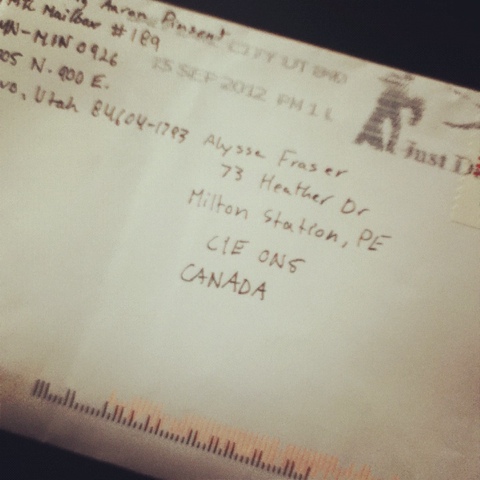 Aaron Pinsent
MTC Mailbox #189
MIN 0926
N. 900 E.
Utah 84604-1793
CITY UT 840
15 SEP 2012 PM 1 L
Just D
Alyssa Fraser
73 Heather Dr
Milton Station, PE
C1E 0N5
CANADA